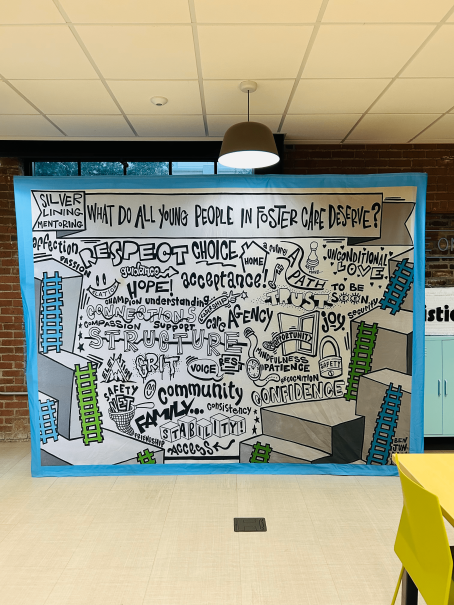 SILVER
LINING
MENTORING
WHAT DO ALL YOUNG PEOPLE IN FOSTER CARE DESERVE?
affection
PASSION
RESPECT
CHOICE
HOME
a future
A PATH
UNCONDITIONAL
LOVE!
guidance
HOPE!
acceptance!
TO BE
champion
understanding
CONNECTIONS
COMPASSION
SUPPORT
care
AGENCY
joy
security
STRUCTURE
OPPORTUNITY
MINDFULNESS
PATIENCE
GRIT
VOICE
YES!
SAFETY
NET
SAFETY
RECOGNITION
community
CONFIDENCE
FAMILY...
consistency
FRIENDSHIP
STABILITY!
ACCESS
BEN